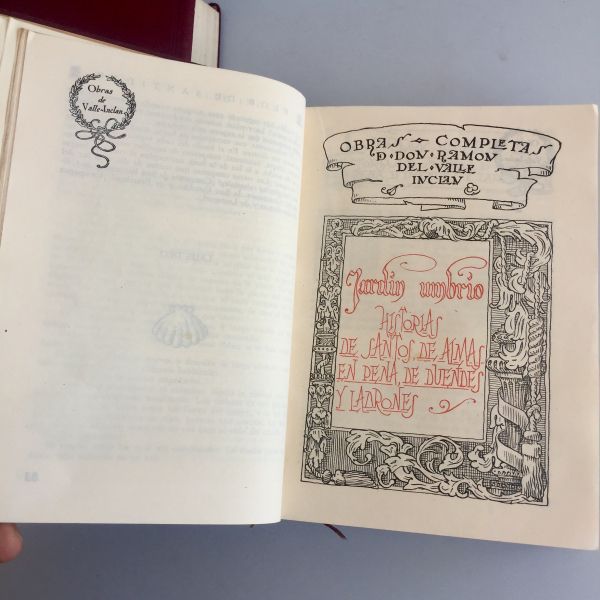 Obras
de
Valle-Inclan
OBRAS COMPLETAS
D. DON. RAMON
DEL. VALLE
INCLAN
Jardin umbrio
HISTORIAS
DE SANTOS, DE ALMAS
EN PENA, DE DUENDES
Y LADRONES